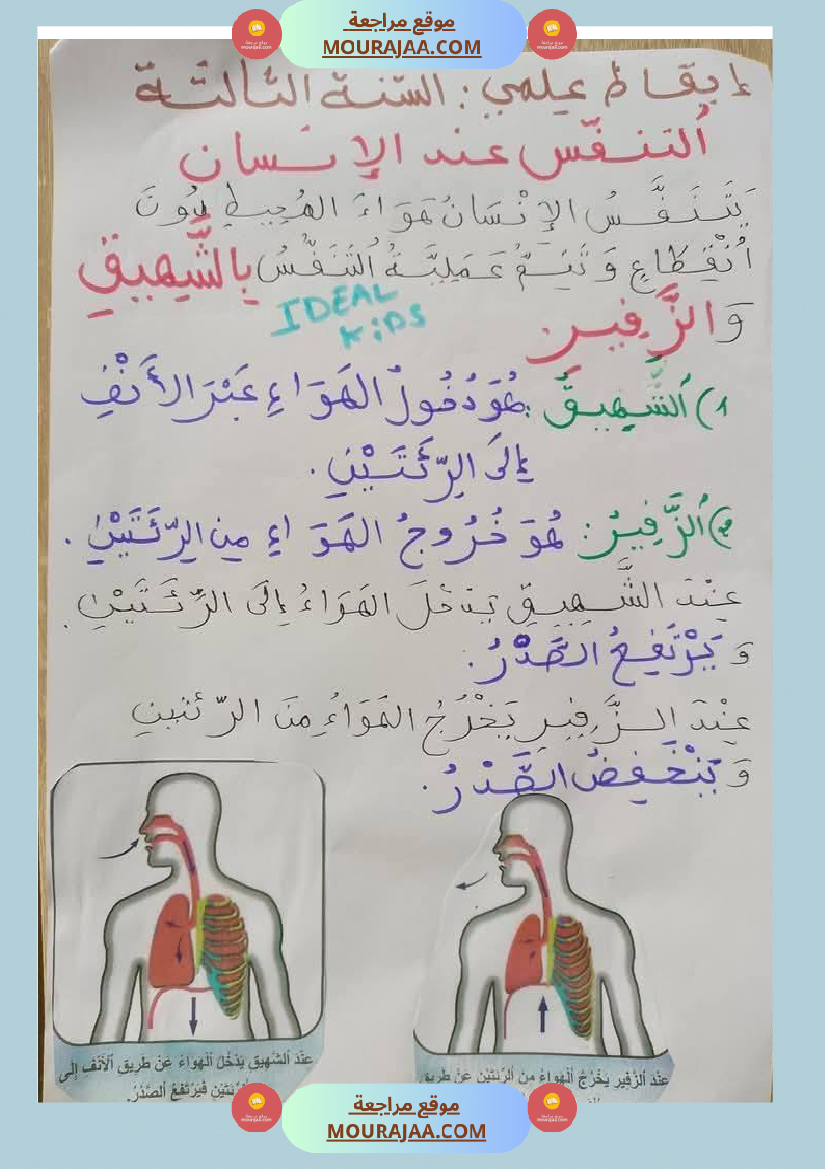 موقع مراجعة
MOURAJAA.COM
إيقاظ علمي: السنة الثالثة
ألتنفّس عند الإنسان
يَتَنَفَّسُ الإِنْسَانُ هَوَاءَ المُحِيطِ دُونَ
اُنْقِطَاعٍ وَ تَتِمُّ عَمَلِيَّةُ التَنَفُّسُ بِالشَّهِيقِ
وَ الزَّفِيرِ.
IDEAL
KiDS
1) اُلشَّهِيقُ: هُوَ دُخُولُ الهَوَاءِ عَبْرَ الأَنْفِ
إِلَى الرِّئَتَيْنِ.
2) اُلزَّفِيرُ: هُوَ خُرُوجُ الهَوَاءِ مِنَ الرِّئَتَيْنِ.
عِنْدَ الشَّهِيقِ يَدْخُلُ الهَوَاءُ إِلَى الرِّئَتَيْنِ.
وَ يَرْتَفِعُ الصَّدْرُ.
عِنْدَ الزَّفِيرِ يَخْرُجُ الهَوَاءُ مِنَ الرّئتينِ
وَ يَنْخَفِضُ الصَّدْرُ.
عِنْدَ اَلشَّهِيقِ يَدْخُلُ اَلْهَوَاءُ عَنْ طَرِيقِ اَلْأَنْفِ إِلَى
الرِّئَتَيْنِ فَيَرْتَفِعُ اَلصَّدْرُ.
عِنْدَ اَلزَّفِيرِ يَخْرُجُ اَلْهَوَاءُ مِنَ اَلرِّئَتَيْنِ عَنْ طَرِيقِ
موقع مراجعة
MOURAJAA.COM